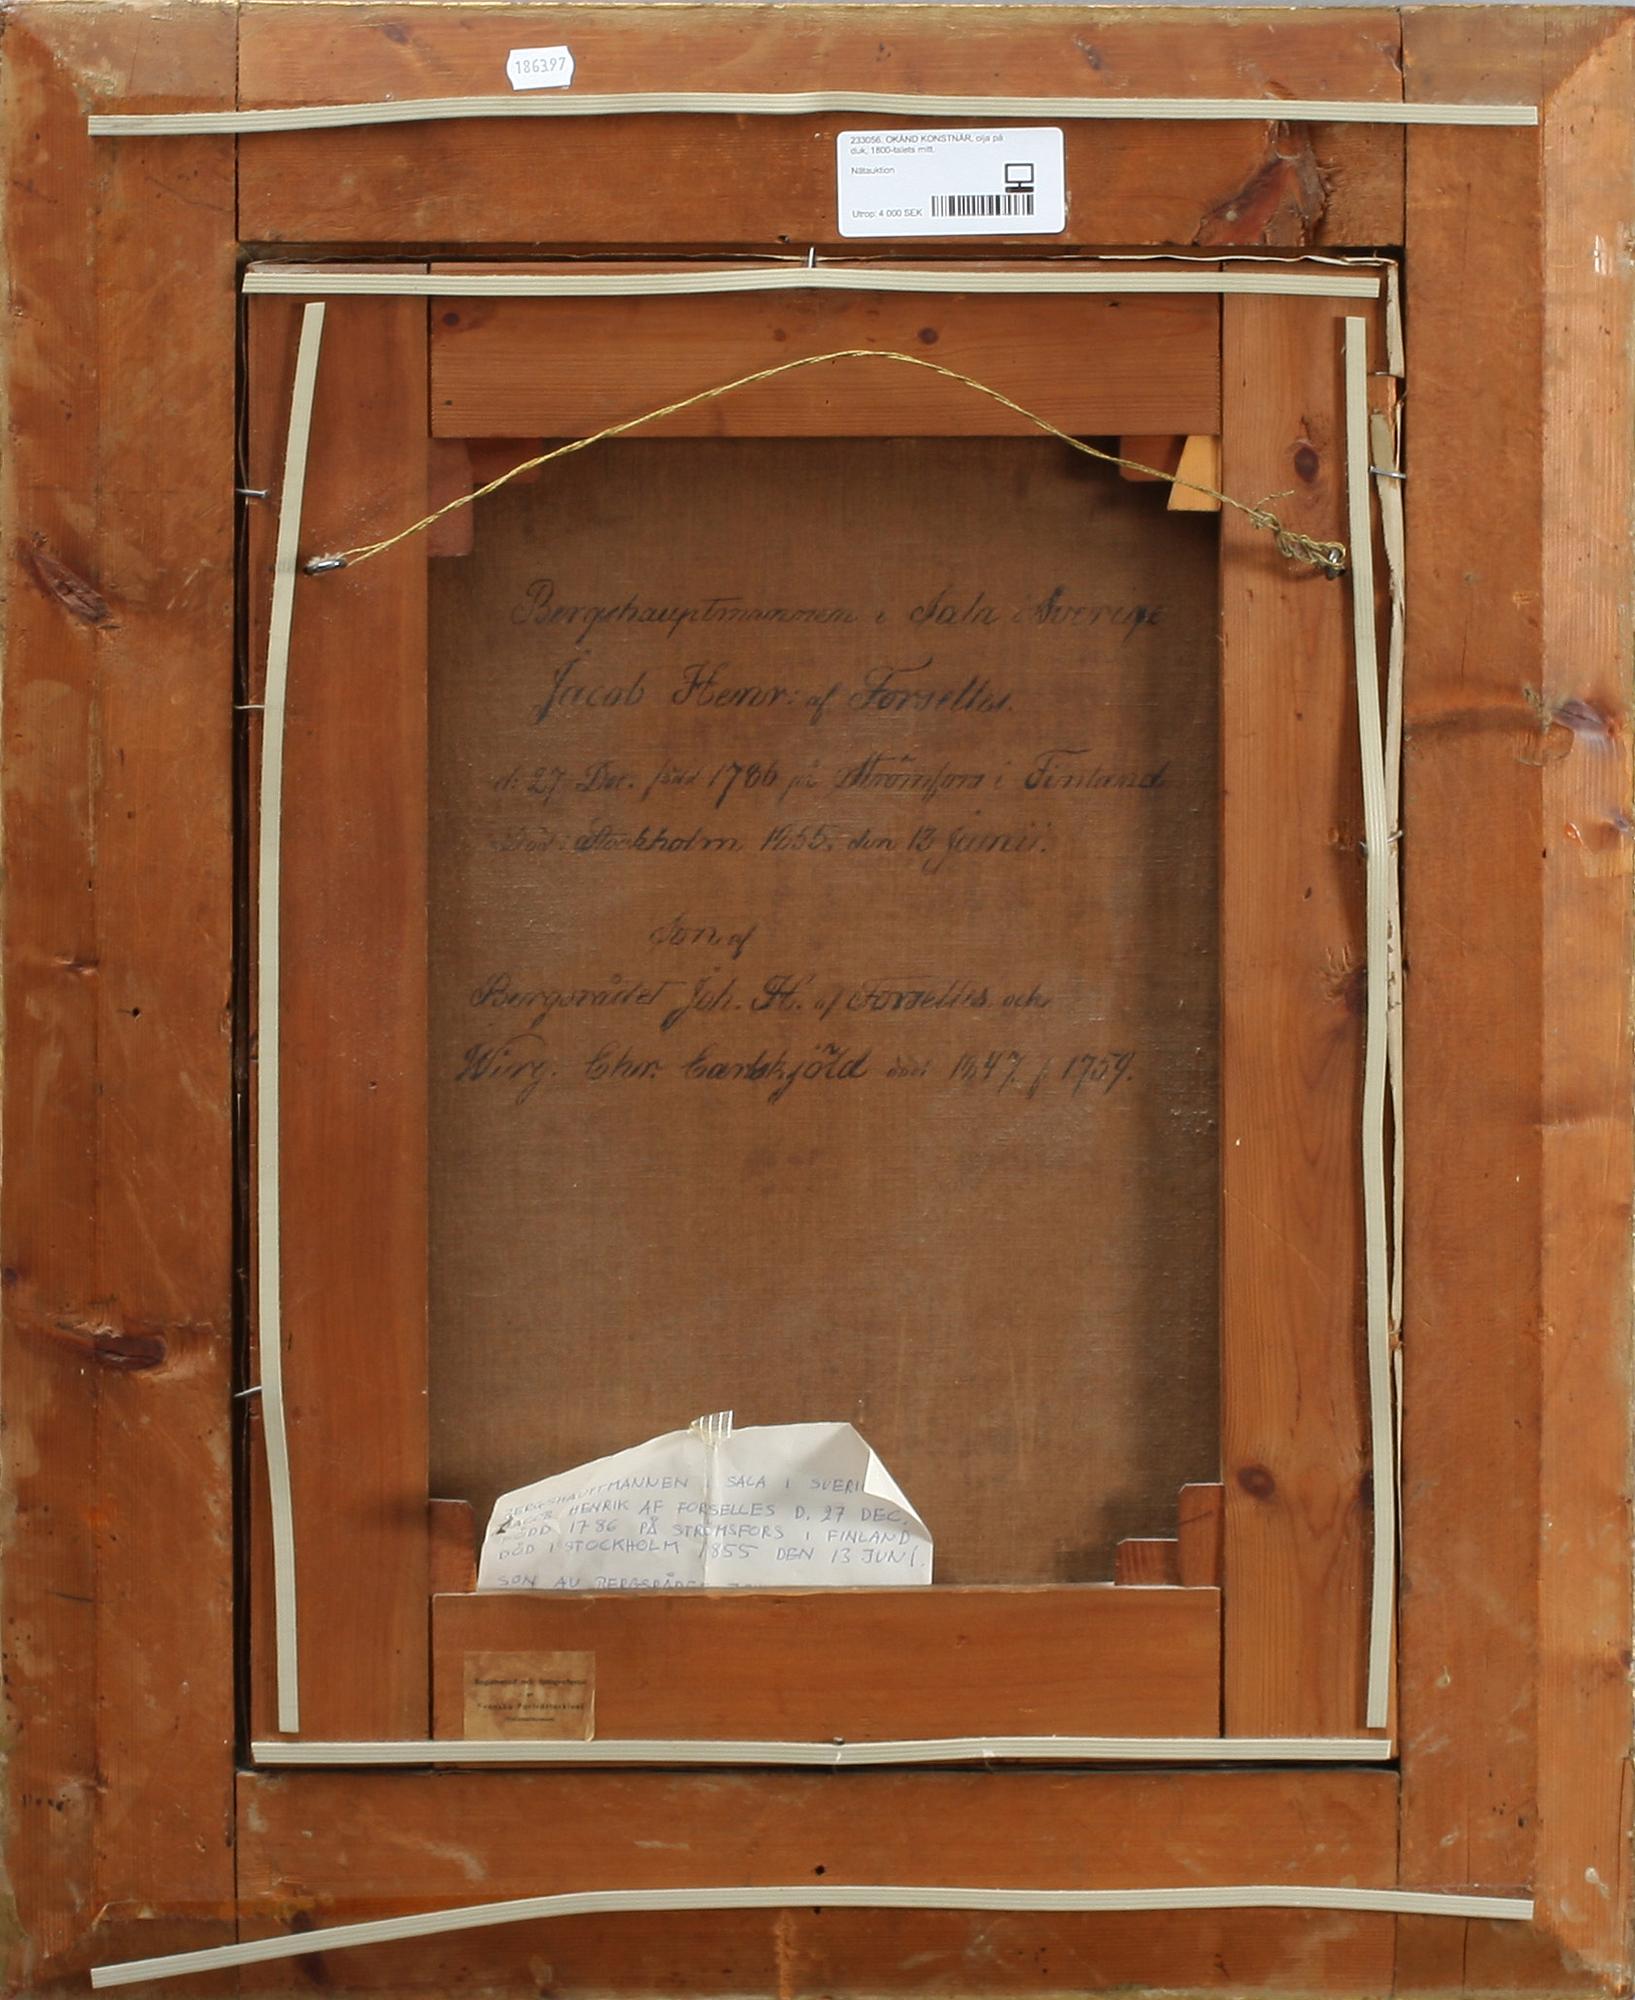 186397
233056. OKÄND KONSTNÄR, olja på
duk, 1800-talets mitt.
Nätauktion
Utrop: 4 000 SEK
Bergshauptmannen i Sala i Sverige
Jacob Henr: af Forselles.
d: 27 Dec. född 1786 på Strömfors i Finland
död i Stockholm 1855. den 13 Junii.
Son af
Bergsrådet Joh. H. af Forselles. och
Wirg. Chr. Carlskjöld död 1847. f 1759.
BERGSHAUPTMANNEN I SALA I SVERI
JACOB HENRIK AF FORSELLES D. 27 DEC.
FÖDD 1786 PÅ STRÖMSFORS I FINLAND
DÖD I STOCKHOLM 1855 DEN 13 JUNI.
SON AV BERGSRÅDET
Registrerad och fotograferad
av
Svenska Porträttarkivet
Nationalmuseum